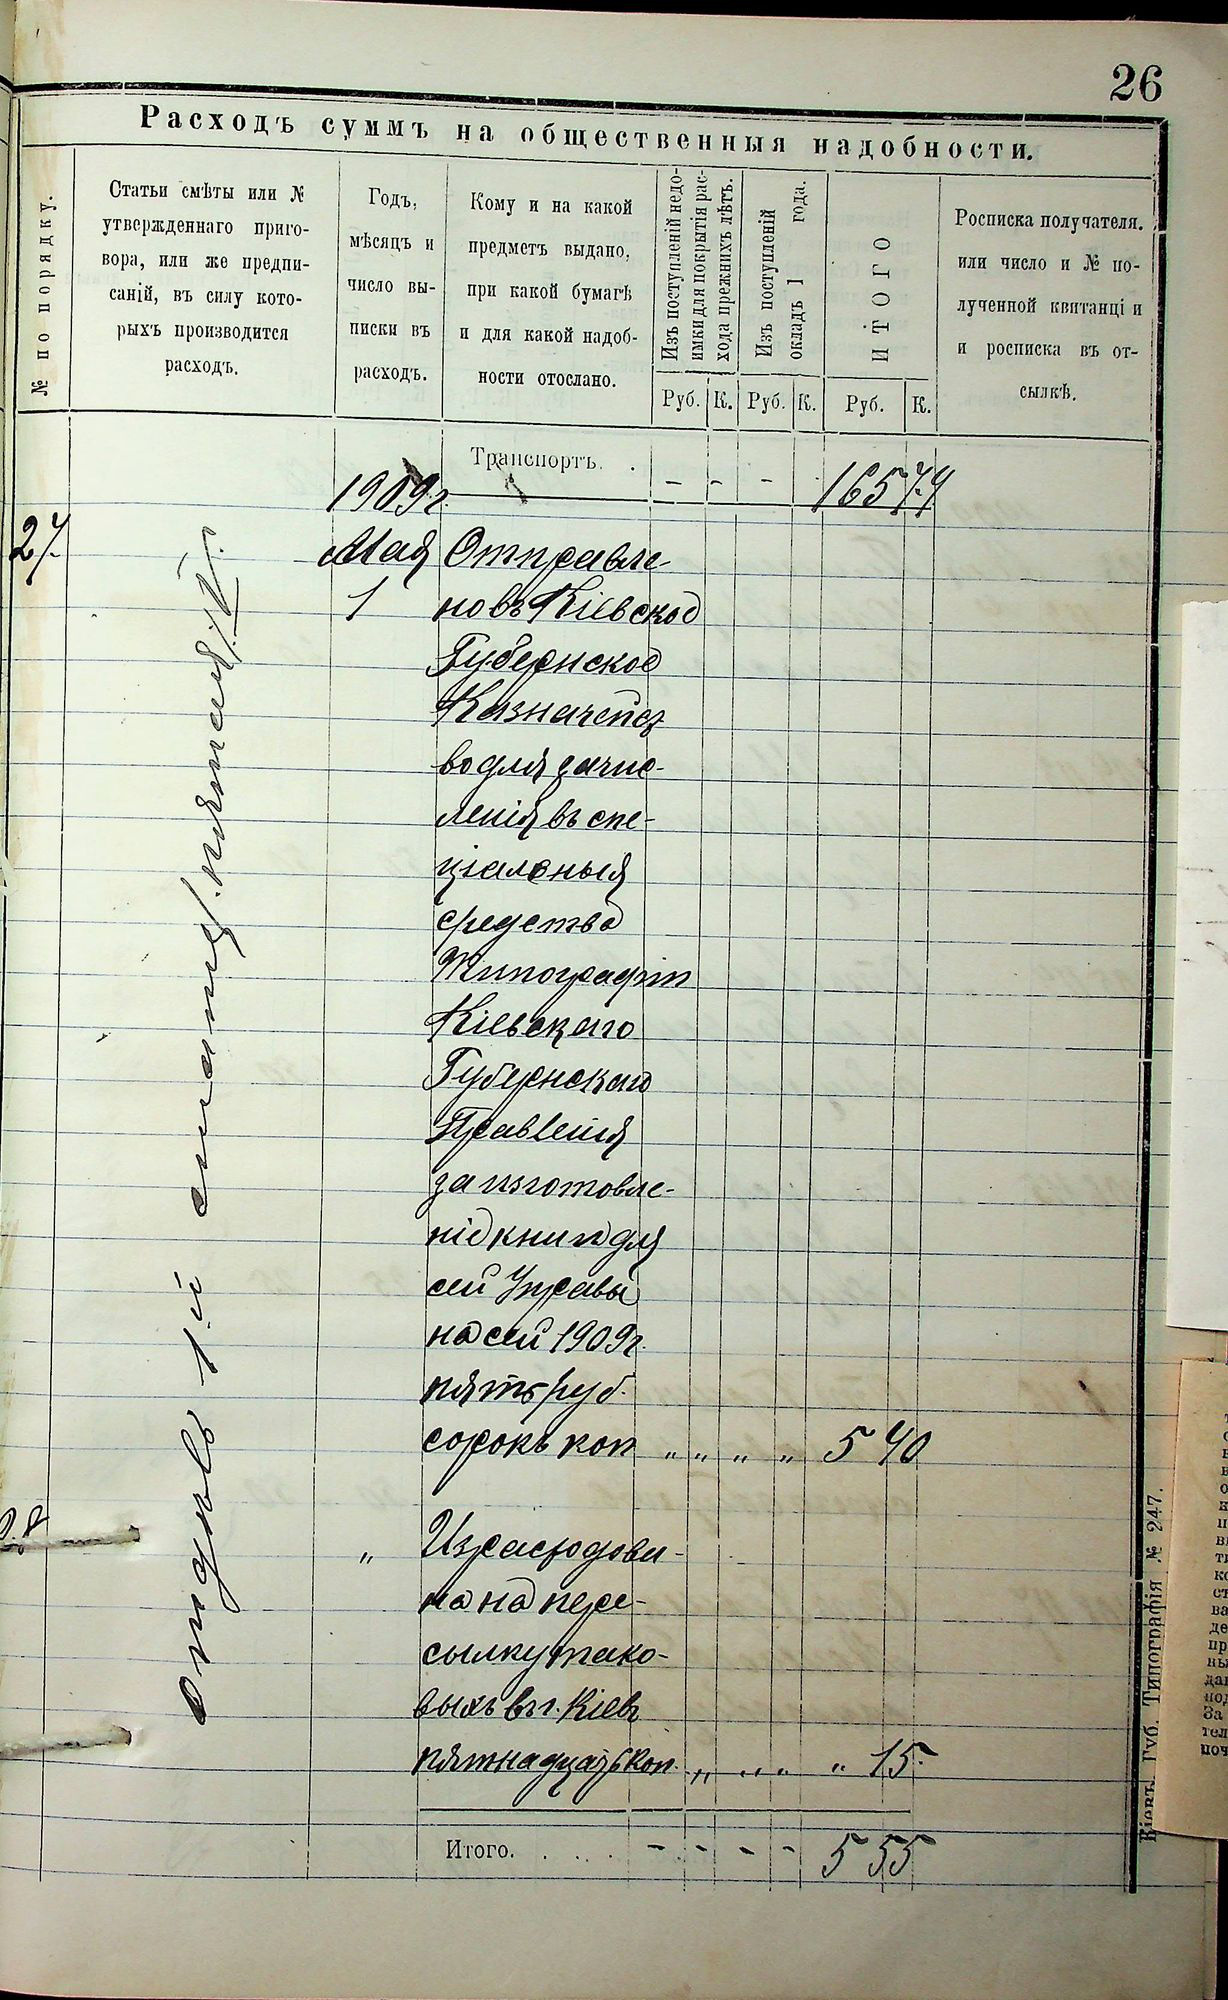 26
Расходъ суммъ на общественныя надобности.
№ по порядку.
Статьи смѣты или №
утвержденнаго приго-
вора, или же предпи-
саній, въ силу кото-
рыхъ производится
расходъ.
Годъ,
мѣсяцъ и
число вы-
писки въ
расходъ.
Кому и на какой
предметъ выдано,
при какой бумагѣ
и для какой надоб-
ности отослано.
Изъ поступленій недо-
имки для покрытія рас-
хода прежнихъ лѣтъ.
Изъ поступленій
окладъ 1 года.
ИТОГО
Росписка получателя.
или число и № по-
лученной квитанці и
и росписка въ от-
сылкѣ.
Руб. К. Руб. К. Руб. К.
Транспортъ. . - - - 1657.4
1909г.
27. Мая Отправле-
1 но въ Кіевское
Губернское
Казначейст
во для зачис-
ленія въ спе-
ціальныя
средства
Типографіи
Кіевскаго
Губернскаго
Правленія
за изготовле-
ніе книгъ для
сей Управы
на сей 1909г.
пять руб.
сорокъ коп „ „ „ „ 5 40
отдѣлъ 1й статья. пятая/V.
28
„ Израсходова-
но на пере-
сылку тако-
выхъ въ г. Кіевъ
пятнадцать коп. „ „ „ „ 15.
Итого. . . . . - - - - 5 55
Кіевъ. Губ. Типографія № 247.